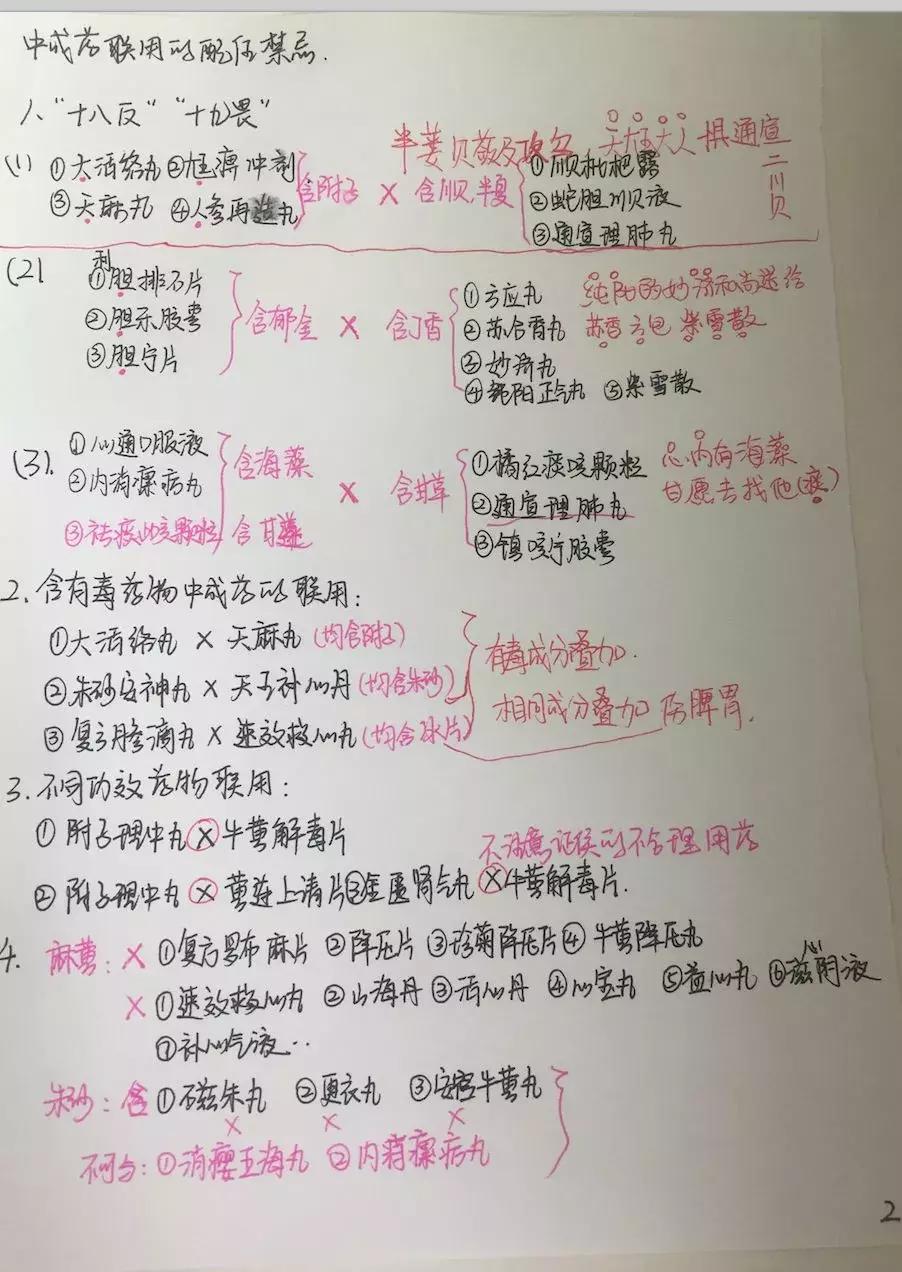 中成药联用的配伍禁忌.
1、"十八反" "十九畏"
半蒌贝蔹及攻乌 天尪大人俱通宣二川贝
(1) ①大活络丸 ②尪痹冲剂
③天麻丸 ④人参再造丸
含附子 × 含川贝,半夏
①川贝枇杷露
②蛇胆川贝液
③通宣理肺丸
(2)
①利胆排石片
②胆乐胶囊
③胆宁片
含郁金 × 含丁香
①六应丸
②苏合香丸
③妙济丸
④纯阳正气丸 ⑤紫雪散
纯阳的妙济和尚送给
苏香六包紫雪散
(3).
①心通口服液
②内消瘰疬丸
③祛痰止咳颗粒
含海藻
含甘遂
× 含甘草
①橘红痰咳颗粒
②通宣理肺丸
③镇咳宁胶囊
心内有海藻
甘愿去找他(痰)
2.含有毒药物中成药的联用:
①大活络丸 × 天麻丸(均含附子)
②朱砂安神丸 × 天王补心丹(均含朱砂)
③复方丹参滴丸 × 速效救心丸(均含冰片)
有毒成分叠加.
相同成分叠加 伤脾胃.
3.不同功效药物联用:
①附子理中丸×牛黄解毒片
不注意证候的不合理用药
②附子理中丸×黄连上清片③金匮肾气丸×牛黄解毒片.
4. 麻黄: × ①复方罗布麻片 ②降压片 ③珍菊降压片④牛黄降压丸
× ①速效救心丸 ②山海丹 ③活心丹 ④心宝丸 ⑤益心丸 ⑥滋心阴液
⑦补心气液..
朱砂: 含 ①磁朱丸 ②更衣丸 ③安宫牛黄丸
× × ×
不可与: ①消瘿五海丸 ②内消瘰疬丸
2